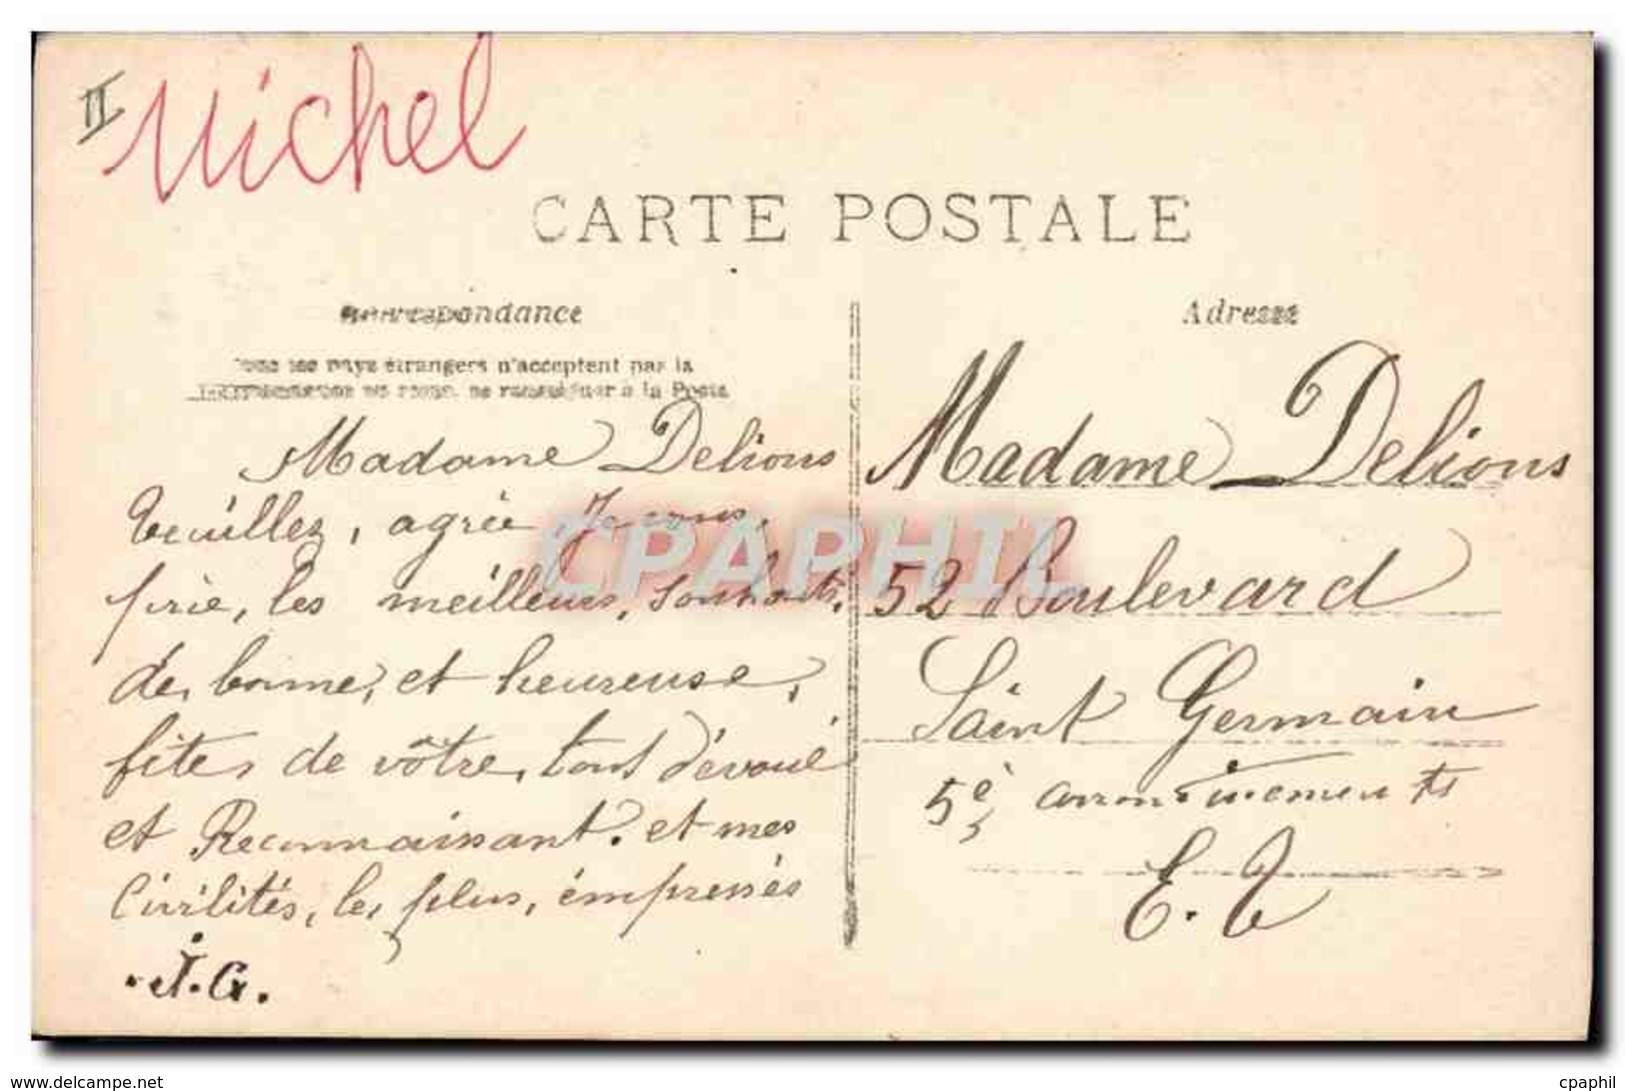 II
Michel
CARTE POSTALE
Correspondance
Tous les pays étrangers n'acceptent pas la
se renseigner à la Poste
Madame Delions
Veuillez, agrée, Je vous,
prie, les meilleurs, souhaits,
de, bonne, et heureuse,
fête, de vôtre, tout dévoué
et Reconnaissant. et mes
Civilités, les plus, empressés
.J.G.
Adresse
Madame Delions
52 Boulevard
Saint Germain
5è arrondissements
E. V
CPAPHIL
www.delcampe.net
cpaphil